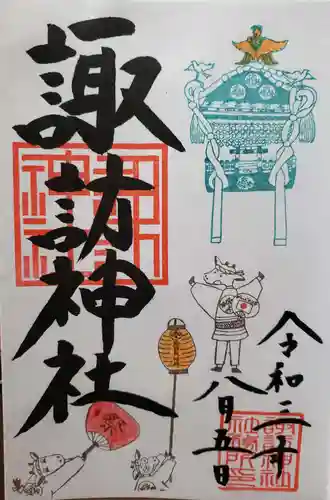 諏訪神社
令和三年
八月五日